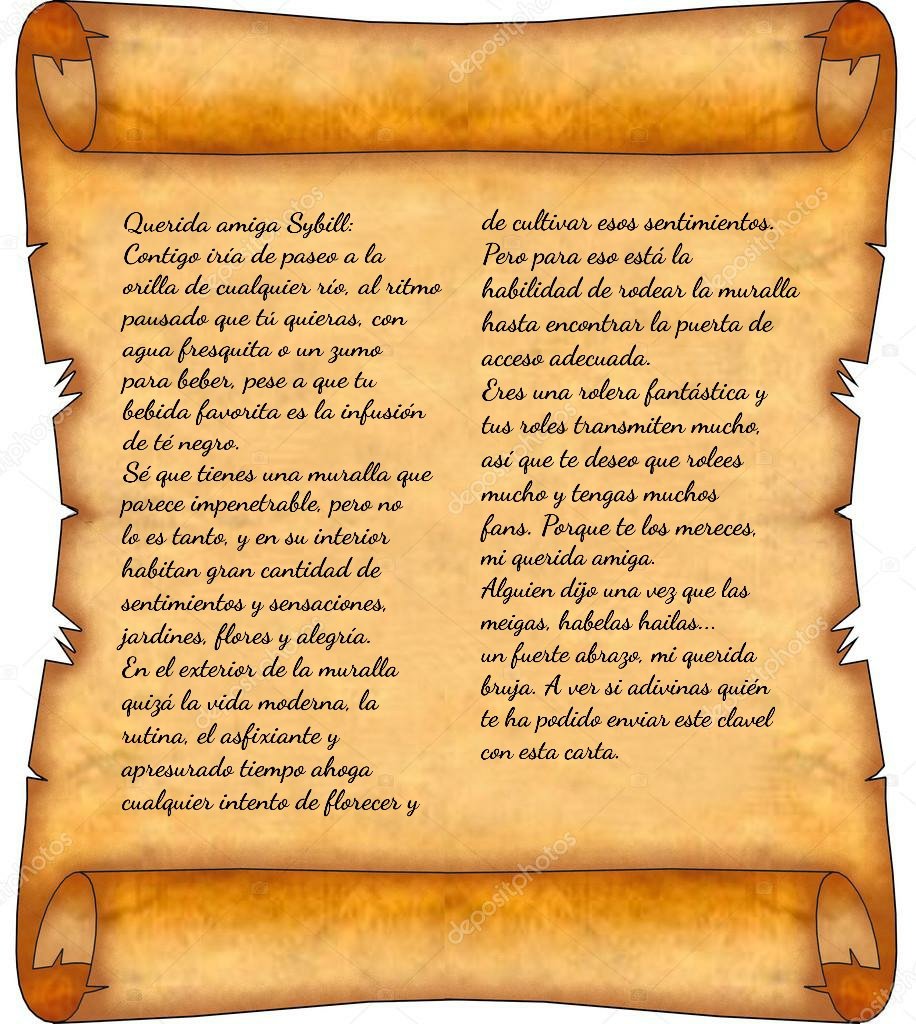 Querida amiga Sybill:
Contigo iría de paseo a la
orilla de cualquier río, al ritmo
pausado que tú quieras, con
agua fresquita o un zumo
para beber, pese a que tu
bebida favorita es la infusión
de té negro.
Sé que tienes una muralla que
parece impenetrable, pero no
lo es tanto, y en su interior
habitan gran cantidad de
sentimientos y sensaciones,
jardines, flores y alegría.
En el exterior de la muralla
quizá la vida moderna, la
rutina, el asfixiante y
apresurado tiempo ahoga
cualquier intento de florecer y
de cultivar esos sentimientos.
Pero para eso está la
habilidad de rodear la muralla
hasta encontrar la puerta de
acceso adecuada.
Eres una rolera fantástica y
tus roles transmiten mucho,
así que te deseo que rolees
mucho y tengas muchos
fans. Porque te los mereces,
mi querida amiga.
Alguien dijo una vez que las
meigas, habelas hailas...
un fuerte abrazo, mi querida
bruja. A ver si adivinas quién
te ha podido enviar este clavel
con esta carta.
depositphotos
depositphotos
depositphotos
depositphotos
depositphotos
depositphotos